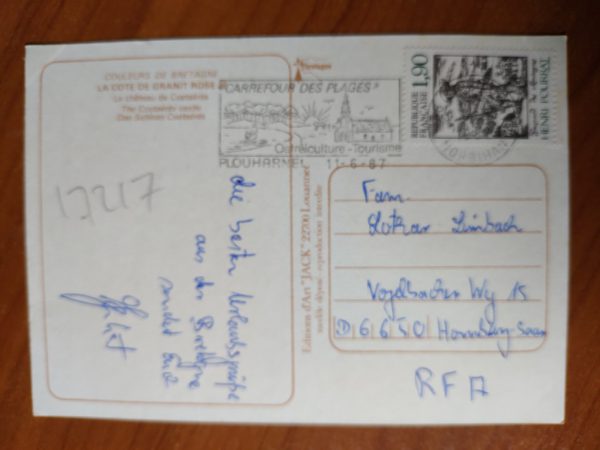 COULEURS DE BRETAGNE
LA COTE DE GRANIT ROSE
Le château de Costaérès
The Costaérès castle
Das Schloss Costaérès
Bretagne
"CARREFOUR DES PLAGES"
Ostréiculture - Tourisme
PLOUHARNEL 11-6-87
REPUBLIQUE FRANÇAISE 1,90
HENRI POURRAT
17217
die besten Urlaubsgrüße
aus der Bretagne
sendet Euch
Editions d'Art "JACK" 22700 Louannec
modèle déposé - reproduction interdite
Fam.
Lothar Limbach
Vogelbacher Weg 15
D 6650 Homburg-Saar
RFA